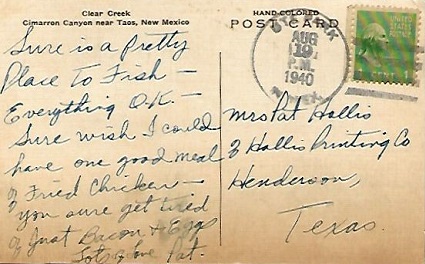 Clear Creek
Cimarron Canyon near Taos, New Mexico
HAND-COLORED
POST CARD
AUG
19
P.M.
1940
N. MEX.
UNITED
STATES
Sure is a pretty
Place to Fish —
Everything O.K. —
Sure wish I could
have one good meal
of Fried Chicken —
you sure get tired
of Just Bacon & Eggs
Lots of love Pat.
Mrs Pat Hallis
% Hallis Printing Co
Henderson,
Texas.